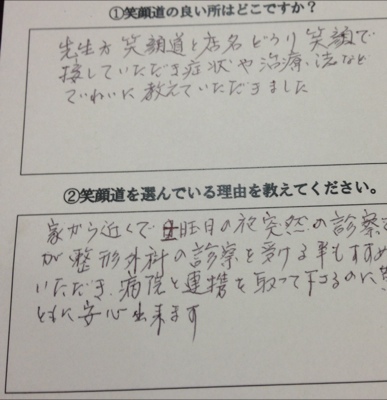 ①笑顔道の良い所はどこですか？
先生方 笑顔道と店名どうり笑顔で
接していただき症状や治療法など
ていねいに教えていただきました
②笑顔道を選んでいる理由を教えてください。
家から近くで 日曜日の夜突然の診察
が整形外科の診察を受ける事もすすめ
いただき、病院と連携を取って下さるのに
ともに安心出来ます